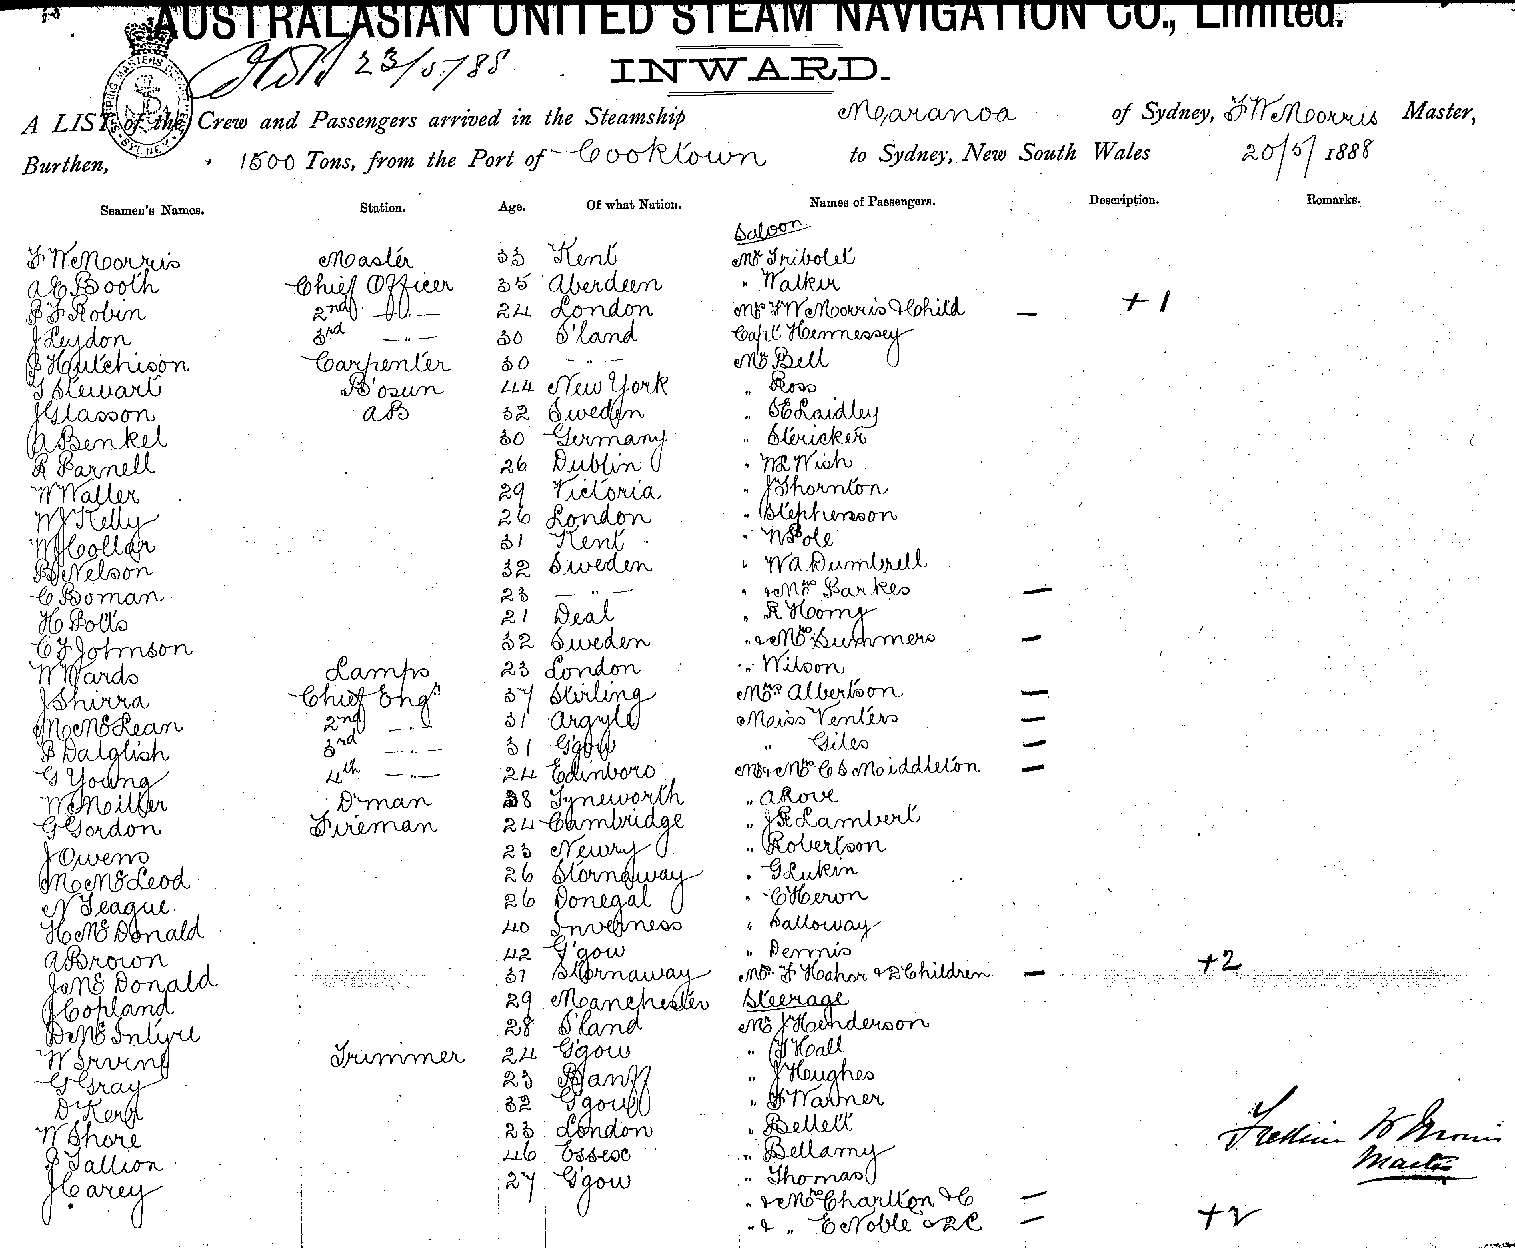 AUSTRALASIAN UNITED STEAM NAVIGATION CO., Limited.
23/5/88
INWARD.
A LIST of the Crew and Passengers arrived in the Steamship Maranoa of Sydney, F W Morris Master,
Burthen, 1500 Tons, from the Port of Cooktown to Sydney, New South Wales 20/5/1888
Seamen's Names. Station. Age. Of what Nation. Names of Passengers. Description. Remarks.
Saloon
F W Morris Master 33 Kent Mr Tribolet
A E Booth Chief Officer 35 Aberdeen " Walker
P F Robin 2nd -"- 24 London Mrs F W Morris & Child — +1
J Leydon 3rd -"- 30 S'land Capt Hennessey
P Hutchison Carpenter 30 -"- Mr Bell
G Stewart B'osun 44 New York " Ross
J Glasson AB 32 Sweden " S E Laidley
A Benkel 30 Germany " Stericker
R Parnell 26 Dublin " Wish
W Waller 29 Victoria " J Thornton
W J Kelly 26 London " Stephenson
W J Collar 31 Kent " N Pole
B Nelson 32 Sweden " W A Dumbrell
C Boman 23 -"- " & Mrs Parkes —
H Potts 21 Deal " R Horny
C F Johnson 32 Sweden " & Mrs Summers —
W Wards Lamps 23 London " Wilson
J Shirra Chief Engr 37 Stirling Mrs Albertson —
M McLean 2nd -"- 31 Argyle Miss Venters —
P Dalglish 3rd -"- 31 G'gow " Giles —
G Young 4th -"- 24 Edinboro Mr & Mrs C S Middleton —
W Miller D'man 38 Tyneworth " A Rove
G Gordon Fireman 24 Cambridge " J R Lambert
J Owens 23 Newry " Robertson
M McLeod 26 Stornaway " G Lukin
N Teague 26 Donegal " C Heron
H McDonald 40 Inverness " Salloway
A Brown 42 G'gow " Dennis
J McDonald 31 Stornaway Mrs F Hahor & 2 Children — +2
J Copland 29 Manchester Steerage
D McIntyre 28 S'land Mr J Henderson
W Irving Trimmer 24 G'gow " J Hall
G Gray 23 Banff " J Hughes
D Kerr 32 G'gow " F Warner
W Shore 23 London " Bellett
P Tallion 46 Essex " Bellamy
J Carey 27 G'gow " Thomas
" & Mrs Charlton & C —
" & " E Noble & 2C — +2
Master